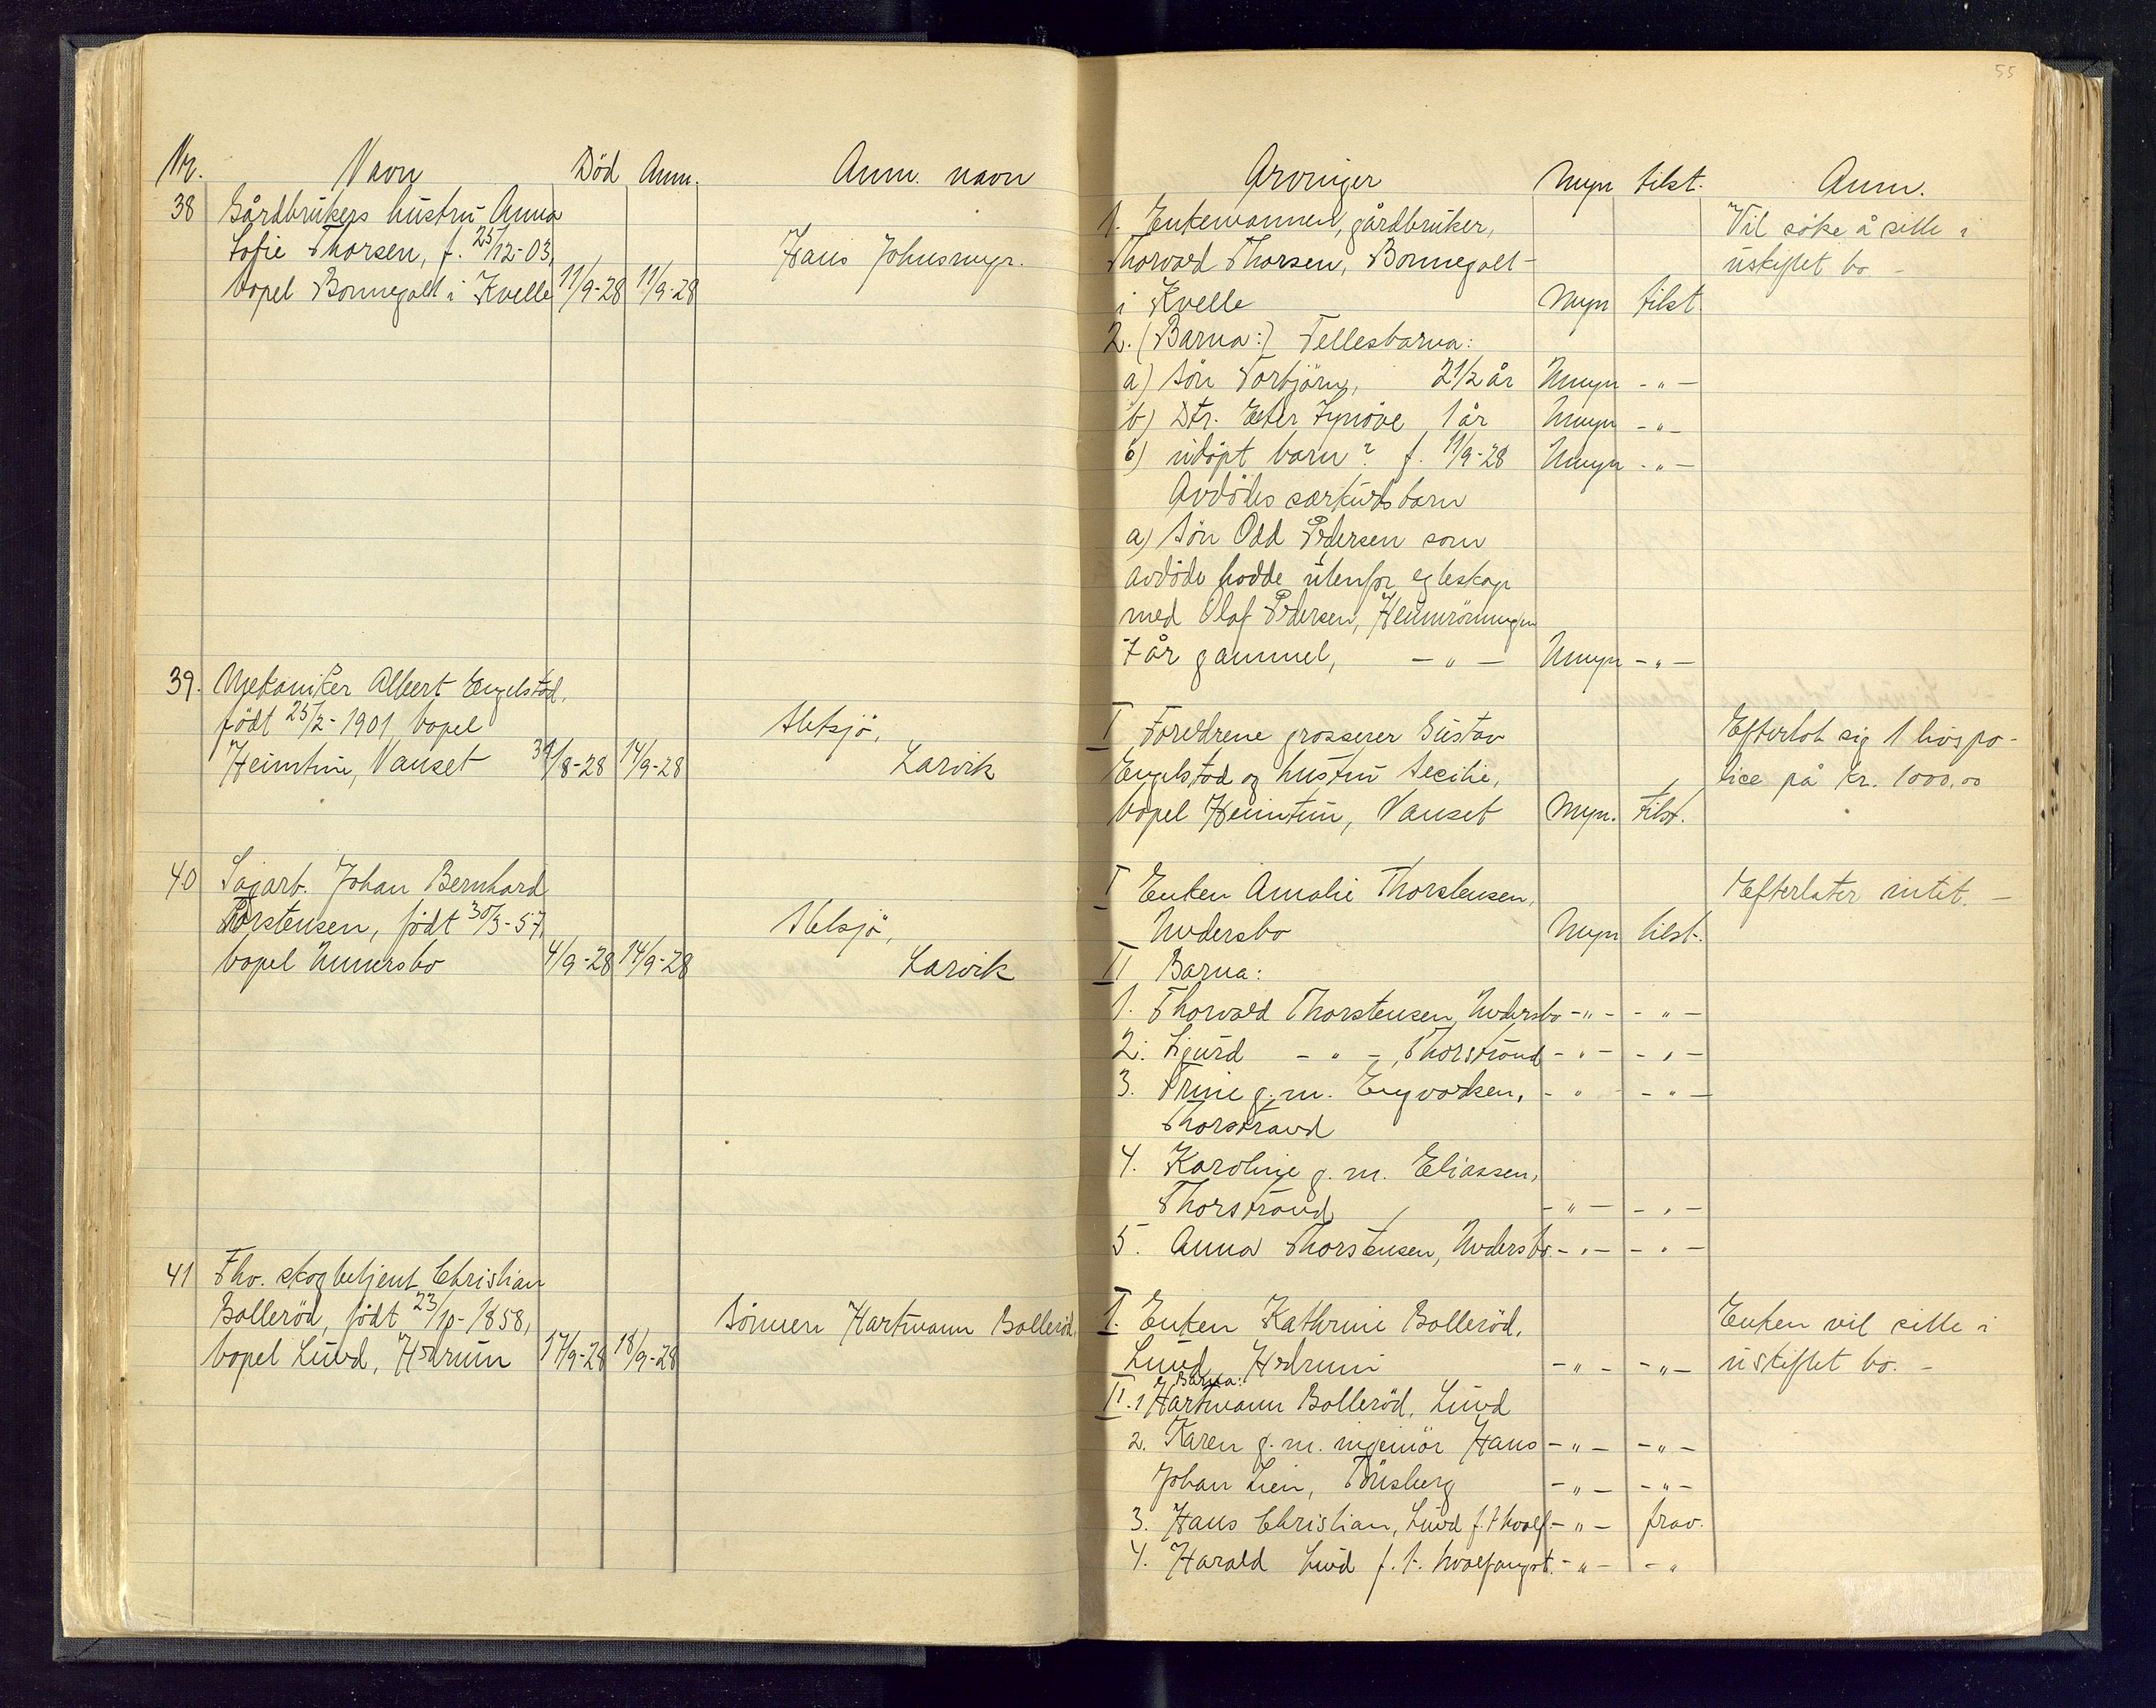 55
Nr. Navn Död Anm. Anm. navn
38 Gårdbrukers hustru Anna
Sofie Thorsen, f. 25/12-03,
bopel Bonnegolt i Kvelle 11/9-28 11/9-28
Hans Johnsmyr.
39. Mekaniker Albert Engelstad,
født 25/2-1901, bopel
Heimtun, Nanset /8-28 14/9-28
Larvik
40 Sagarb. Johan Bernhard
Torstensen, født 30/3-57,
bopel Undersbo 4/9-28 14/9-28
Larvik
41 Fhv. skogbetjent Christian
Bolleröd, født 23/10-1858,
bopel Lund, Hedrum 17/9-28 18/9-28
Sönnen Hartmann Bolleröd
Arvinger Myn tilst. Anm.
1. Enkemannen, gårdbruker,
Thorvald Thorsen, Bonnegolt
i Kvelle Myn tilst.
Vil søke å sitte i
uskiftet bo -
2. (Barna:) Fellesbarna:
a) Sön Torbjörn, 2 1/2 år Umyn - " -
b) Dtr. Ester Synöve 1 år Umyn - " -
c) udöpt barn? f. 11/9-28 Umyn - " -
Avdödes særkuldsbarn
a) Sön Odd Pedersen som
avdöde hadde utenfor egteskap
med Olaf Pedersen,
7 år gammel, - " - Umyn - " -
I Foreldrene grosserer Gustav
Engelstad og hustru Secilie,
bopel Heimtun, Nanset Myn. tilst.
Efterlot sig 1 livspo-
lice på kr. 1000,00
I Enken Amalie Thorstensen,
Undersbo Myn tilst.
Efterlater intet. -
II Barna:
1. Thorvald Thorstensen, Undersbo - " - - " -
2. Sigurd - " -, Thorstrand - " - - " -
3. Trine g.m. Engvoldsen, - " - " -
Thorstrand
4. Karoline g.m. Eliassen,
Thorstrand - " - - " -
5. Anna Thorstensen, Undersbo. - " - - " -
I. Enken Kathrine Bolleröd,
Lund Hedrum - " - - " -
Enken vil sitte i
uskiftet bo. -
Barna:
II. 1 Hartmann Bolleröd, Lund
2. Karen g.m. ingeniör Hans - " - - " -
Johan Lien, Tönsberg - " - - " -
3. Hans Christian, Lund f.t. hvalf. - " - frav.
4. Harald Lund f.t. hvalfangst. - " - - "